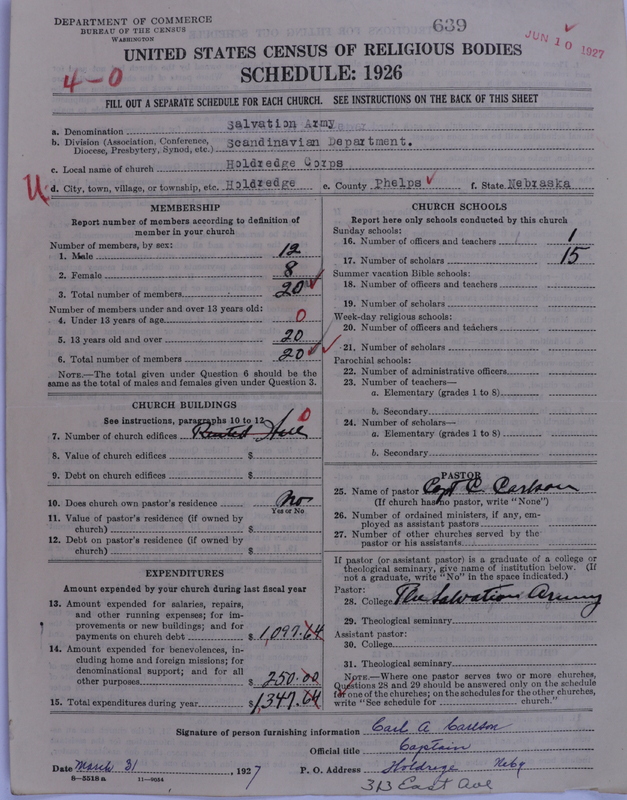 DEPARTMENT OF COMMERCE
BUREAU OF THE CENSUS
WASHINGTON
639
JUN 10 1927
UNITED STATES CENSUS OF RELIGIOUS BODIES
4-0
SCHEDULE: 1926
FILL OUT A SEPARATE SCHEDULE FOR EACH CHURCH. SEE INSTRUCTIONS ON THE BACK OF THIS SHEET
a. Denomination Salvation Army
b. Division (Association, Conference, Diocese, Presbytery, Synod, etc.) Scandinavian Department.
c. Local name of church Holdredge Corps
U d. City, town, village, or township, etc. Holdredge e. County Phelps f. State Nebraska
MEMBERSHIP
Report number of members according to definition of
member in your church
Number of members, by sex:
1. Male 12
2. Female 8
3. Total number of members 20
Number of members under and over 13 years old:
4. Under 13 years of age 0
5. 13 years old and over 20
6. Total number of members 20
NOTE.—The total given under Question 6 should be the
same as the total of males and females given under Question 3.
CHURCH BUILDINGS
See instructions, paragraphs 10 to 12
7. Number of church edifices Rented Hall 0
8. Value of church edifices $
9. Debt on church edifices $
10. Does church own pastor's residence No
Yes or No
11. Value of pastor's residence (if owned by
church) $
12. Debt on pastor's residence (if owned by
church) $
EXPENDITURES
Amount expended by your church during last fiscal year
13. Amount expended for salaries, repairs,
and other running expenses; for im-
provements or new buildings; and for
payments on church debt $ 1,097.64
14. Amount expended for benevolences, in-
cluding home and foreign missions; for
denominational support; and for all
other purposes $ 250.00
15. Total expenditures during year $ 1,347.64
CHURCH SCHOOLS
Report here only schools conducted by this church
Sunday schools:
16. Number of officers and teachers 1
17. Number of scholars 15
Summer vacation Bible schools:
18. Number of officers and teachers
19. Number of scholars
Week-day religious schools:
20. Number of officers and teachers
21. Number of scholars
Parochial schools:
22. Number of administrative officers
23. Number of teachers—
a. Elementary (grades 1 to 8)
b. Secondary
24. Number of scholars—
a. Elementary (grades 1 to 8)
b. Secondary
PASTOR
25. Name of pastor Capt C. Carlson
(If church has no pastor, write "None")
26. Number of ordained ministers, if any, em-
ployed as assistant pastors
27. Number of other churches served by the
pastor or his assistants
If pastor (or assistant pastor) is a graduate of a college or
theological seminary, give name of institution below. (If
not a graduate, write "No" in the space indicated.)
Pastor:
28. College The Salvation Army
29. Theological seminary
Assistant pastor:
30. College
31. Theological seminary
NOTE.—Where one pastor serves two or more churches,
Questions 28 and 29 should be answered only on the schedule
of one of the churches; on the schedules for the other churches,
write "See schedule for church."
Signature of person furnishing information Carl A Carlson
Official title Captain
Date March 31, 1927 P. O. Address Holdrege Nebr
8-5518 a 11-9054
313 East Ave